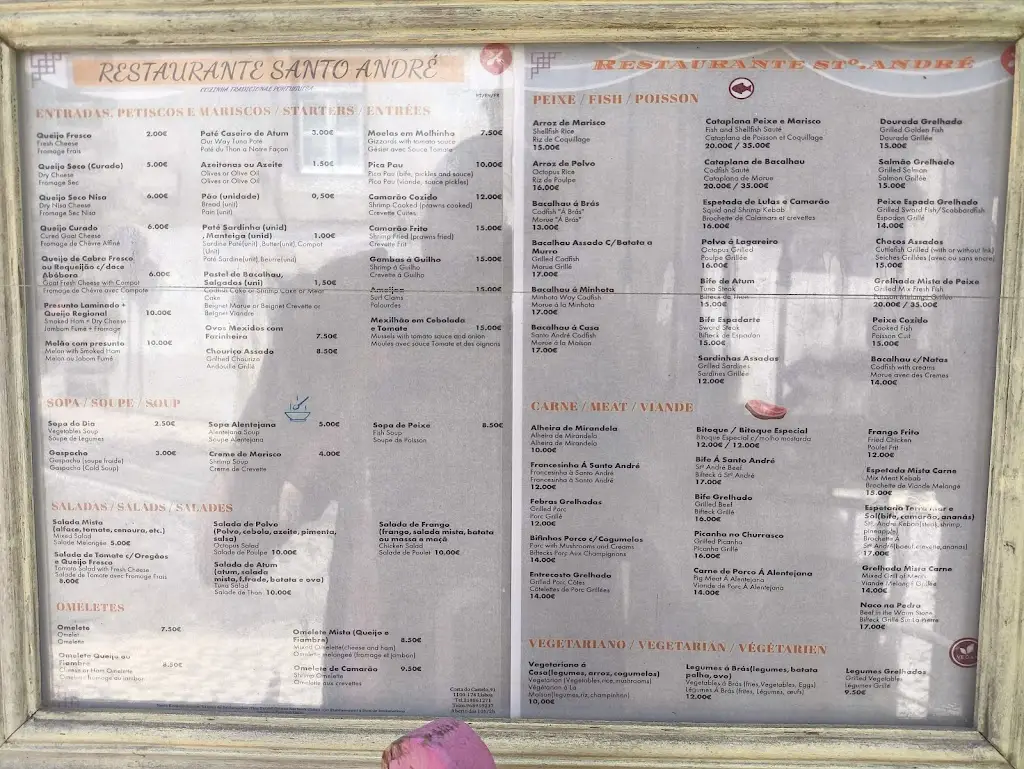 RESTAURANTE SANTO ANDRÉ
COZINHA TRADICIONAL PORTUGUESA
ENTRADAS, PETISCOS E MARISCOS / STARTERS / ENTRÉES
Queijo Fresco 2.00€
Fresh Cheese
Fromage Frais
Queijo Seco (Curado) 5.00€
Dry Cheese
Fromage Sec
Queijo Seco Nisa 6.00€
Dry Nisa Cheese
Fromage Sec Nisa
Queijo Curado 6.00€
Cured Goat Cheese
Fromage de Chèvre Affiné
Queijo de Cabra Fresco
ou Requeijão c/doce
Abóbora 6.00€
Goat Fresh Cheese with Compot
Fromage de Chèvre avec Compote
Presunto Laminado +
Queijo Regional 10.00€
Smoked Ham + Dry Cheese
Jambom Fumé + Fromage
Melão com presunto 10.00€
Melon with Smoked Ham
Melon au Jabom Fumé
Paté Caseiro de Atum 3.00€
Our Way Tuna Paté
Paté du Thon a Notre Façon
Azeitonas ou Azeite 1.50€
Olives or Olive Oil
Olives or Olive Oil
Pão (unidade) 0,50€
Bread (unit)
Pain (unit)
Paté Sardinha (unid)
, Manteiga (unid) 1.00€
Sardine Paté(unit) ,Butter(unit), Compot
(Unit)
Paté Sardine(unit), Beurre(unit)
Pastel de Bacalhau,
Salgados (uni) 1,50€
Codfish Cake or Shrimp Cake or Meat
Cake
Beignet Morue or Beignet Crevette or
Beignet Viandre
Ovos Mexidos com
Farinheira 7.50€
Chouriço Assado 8.50€
Grillhed Chourizo
Andouille Grillé
Moelas em Molhinho 7.50€
Gizzards with tomato sauce
Gésier avec Sauce Tomate
Pica Pau 10.00€
Pica Pau (bife, pickles and sauce)
Pica Pau (viande, sauce pickles)
Camarão Cozido 12.00€
Shrimp Cooked (prawns cooked)
Crevette Cuites
Camarão Frito 15.00€
Shrimp Fried (prawns fried)
Crevette Frit
Gambas à Guilho 15.00€
Shrimp à Guilho
Crevette à Guilho
Ameijoa 15.00€
Surf Clams
Palourdes
Mexilhão em Cebolada
e Tomate 15.00€
Mussels with tomato sauce and onion
Moules avec sauce Tomate et des oignons
SOPA / SOUPE / SOUP
Sopa do Dia 2.50€
Vegetables Soup
Soupe de Légumes
Gaspacho 3.00€
Gaspachu (soupe froide)
Gaspacho (Cold Soup)
Sopa Alentejana 5.00€
Alentejana Soup
Soupe Alentejana
Creme de Marisco 4.00€
Shrimp Soup
Creme de Crevette
Sopa de Peixe 8.50€
Fish Soup
Soupe de Poisson
SALADAS / SALADS / SALADES
Salada Mista
(alface, tomate, cenoura, etc.)
Mixed Salad
Salade Melangée 5.00€
Salada de Tomate c/Oregãos
e Queijo Fresco
Tomato Salad with Fresh Cheese
Salade de Tomate avec Fromage Frais
8.00€
Salada de Polvo
(Polvo, cebola, azeite, pimenta,
salsa)
Octopus Salad
Salade de Poulpe 10.00€
Salada de Atum
(atum, salada
mista, f.frade, batata e ovo)
Tuna Salad
Salade de Thon 10.00€
Salada de Frango
(frango, salada mista, batata
ou massa e maçã
Chicken Salad
Salade de Poulet 10,00€
OMELETES
Omelete 7.50€
Omelet
Omelette
Omelete Queijo ou
Fiambre 8.50€
Cheese or Ham Omelete
Omelette fromage au jambon
Omelete Mista (Queijo e
Fiambre) 8.50€
Mixed Omelete(cheese and ham)
Omelette melangée (fromage et jambon)
Omelete de Camarão 9.50€
Shrimp Omelete
Omelette aux crevettes
Costa do Castelo,91
1100-178 Lisboa
RESTAURANTE STº.ANDRÉ
PEIXE / FISH / POISSON
Arroz de Marisco
Shellfish Rice
Riz de Coquillage
15.00€
Arroz de Polvo
Octopus Rice
Riz de Poulpe
16.00€
Bacalhau á Brás
Codfish "Á Brás"
Morue "Á Brás"
13.00€
Bacalhau Assado C/Batata a
Murro
Grilled Codfish
Morue Grillé
17.00€
Bacalhau á Minhota
Minhota Way Codfish
Morue à la Minhota
17.00€
Bacalhau á Casa
Santo André Codfish
Morue à la Moison
17.00€
Cataplana Peixe e Marisco
Fish and Shellfish Sauté
Cataplana de Poisson et Coquillage
20.00€ / 35.00€
Cataplana de Bacalhau
Codfish Sauté
Cataplana de Morue
20.00€ / 35.00€
Espetada de Lulas e Camarão
Squid and Shrimp Kebab
Brochette de Calamars et crevettes
16.00€
Polvo á Lagareiro
Octopus Grilled
Poulpe Grillée
16.00€
Bife de Atum
Tuna Steak
Bifteck de Thon
15.00€
Bife Espadarte
Sword Steak
Bifteck de Espadon
15.00€
Sardinhas Assadas
Grilled Sardines
Sardines Grillée
12.00€
Dourada Grelhada
Grilled Golden Fish
Dourade Grillée
15.00€
Salmão Grelhado
Grilled Salmon
Salmon Grillée
15.00€
Peixe Espada Grelhado
Grilled Sword Fish/Scabbardfish
Espadon Grillé
14.00€
Chocos Assados
Cuttlefish Grilled (with or without Ink)
Seiches Grillées (avec ou sans encre)
15.00€
Grelhada Mista de Peixe
Grilled Mix Fresh Fish
Poisson Melangé Grillée
20.00€ / 35.00€
Peixe Cozido
Cooked Fish
Poisson Cuit
15.00€
Bacalhau c/Natas
Codfish with creams
Morue avec des Cremes
14.00€
CARNE / MEAT / VIANDE
Alheira de Mirandela
Alheira de Mirandela
Alheira de Mirandela
10.00€
Francesinha Á Santo André
Francesinha à Santo André
Francesinha à Santo André
12.00€
Febras Grelhadas
Grilled Porc
Porc Grillé
12.00€
Bifinhos Porco c/Cogumelos
Porc with Mushrooms and Creams
Biftecks Porc Aux Champignons
14.00€
Entrecosto Grelhado
Grilled Porc Côtes
Côtelettes de Porc Grillées
14.00€
Bitoque / Bitoque Especial
Bitoque Especial c/molho mostarda
12.00€ / 12.00€
Bife Á Santo André
Stº André Beef
Bifteck à Stº André
17.00€
Bife Grelhado
Grilled Beef
Bifteck Grillé
16.00€
Picanha no Churrasco
Grilled Picanha
Picanha Grillé
16.00€
Carne de Porco Á Alentejana
Pig Meat Á Alentejana
Viande de Porc Á Alentejana
14.00€
Frango Frito
Fried Chicken
Poulet Frit
12.00€
Espetada Mista Carne
Mix Meat Kebab
Brochette de Viande Melangé
15.00€
Espetada Terra mar e
Sal(bife, camarão, ananás)
17.00€
Grelhada Mista Carne
Mixed Grill of Meat
Viande Melangé Grillée
14.00€
Naco na Pedra
Beef in the Warm Stone
Bifteck Grillé Sur La Pierre
17.00€
VEGETARIANO / VEGETARIAN / VÉGÉTARIEN
Vegetariano á
Casa(legumes, arroz, cogumelos)
Vegetarian (Vegetables,rice, mushrooms)
Végétarian à La
Maison(legumes,riz,champinhon)
10,00€
Legumes á Brás(legumes, batata
palha, ovo)
Vegetables à Brás(fries,Vegetables, Eggs)
Légumes Á Brás (frites, Légumes, œufs)
12.00€
Legumes Grelhados
Grilled Vegetables
Légumes Grillé
9.50€